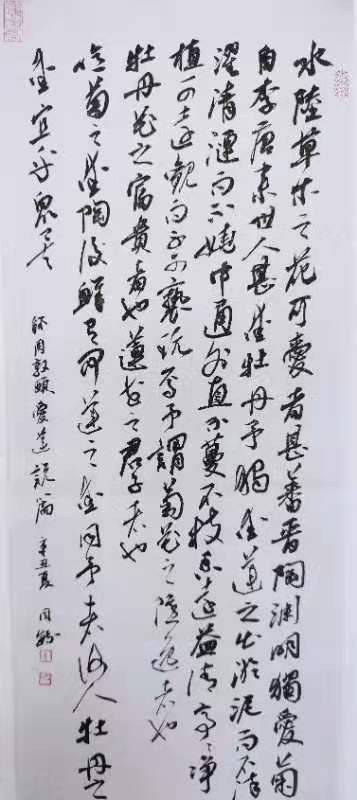 水陸草木之花可愛者甚蕃晋陶渊明獨愛菊
自李唐来世人甚愛牡丹予獨愛蓮之出淤泥而不染
濯清漣而不妖中通外直不蔓不枝香遠益清亭々净
植可遠觀而不可褻玩焉予謂菊花之隱逸者也
牡丹花之富貴者也蓮花之君子者也
噫菊之愛陶後鮮有聞蓮之愛同予者何人牡丹之
愛宜乎衆矣
周敦頤愛蓮説一篇 辛丑夏